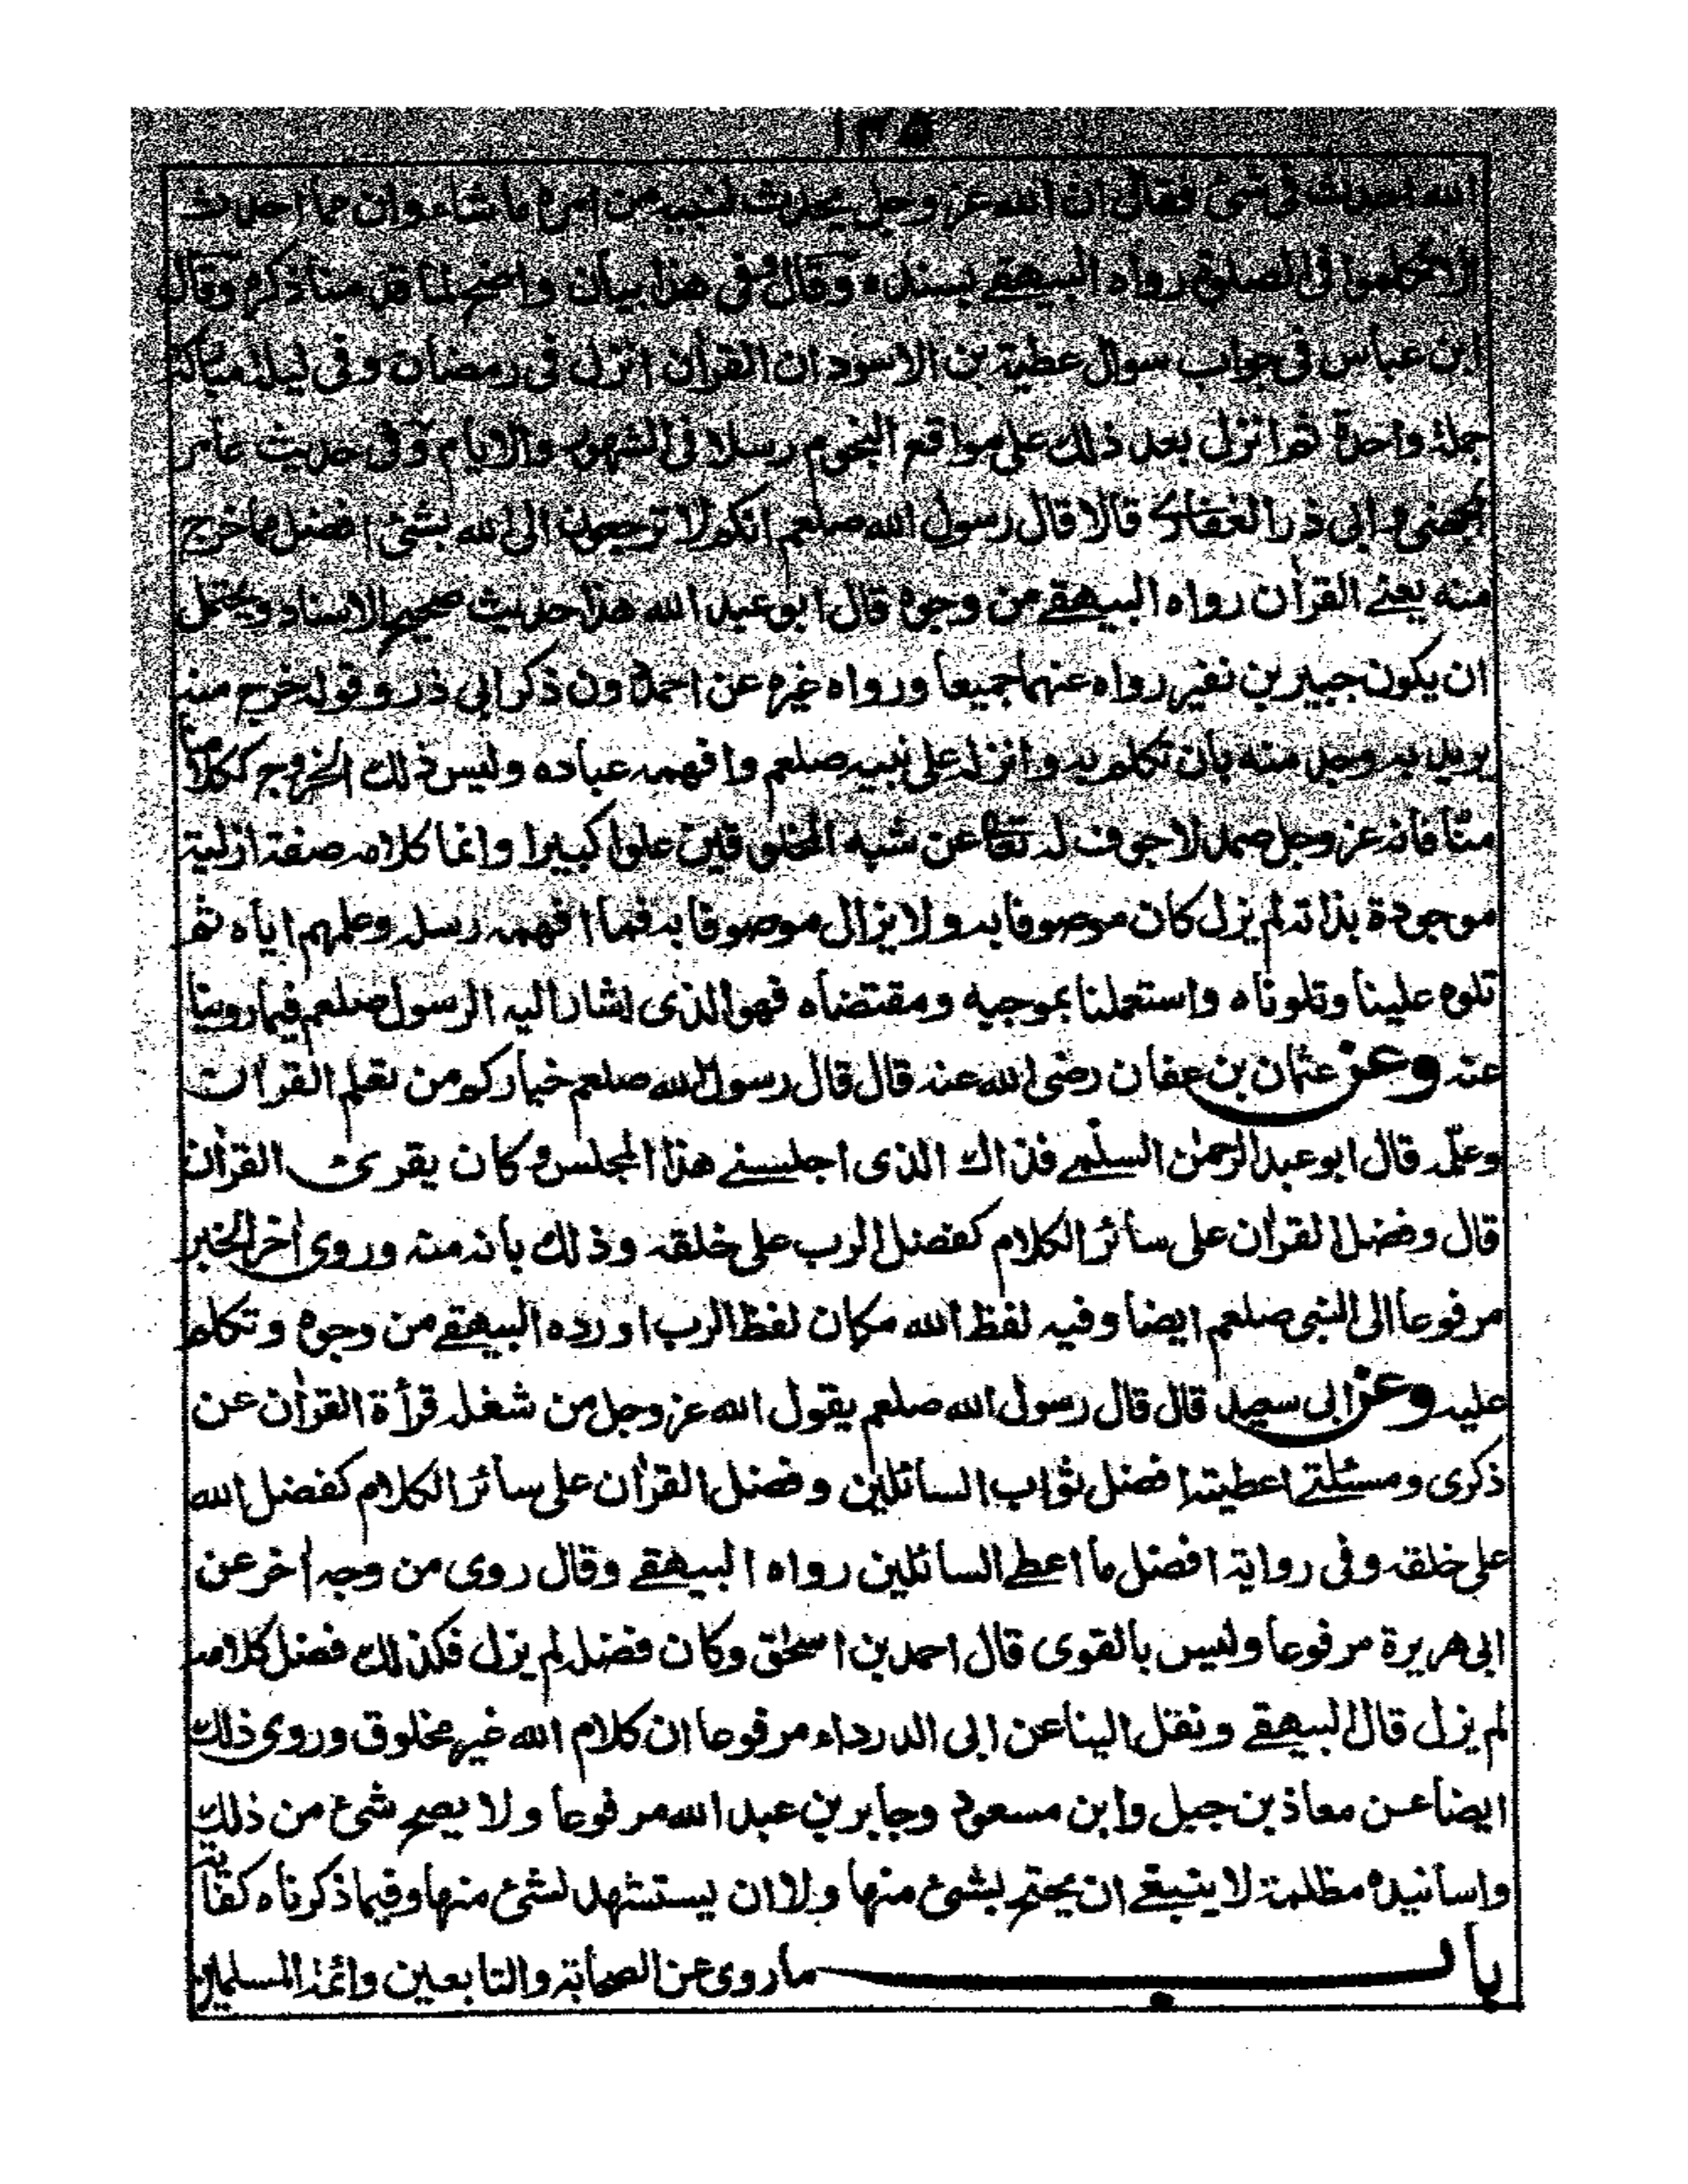 ١٣٥
الله احدث فى شئ فقال ان الله عز وجل يحدث لنبيه من امره ما شاء وان مما احدث
الا تكلموا فى الصلوة رواه البيهقے بسنده وقال فى هذا بيان واضح لما قدمنا ذكره وقال
ابن عباس فى جواب سوال عطية بن الاسود ان القرأن انزل فى رمضان وفى ليلة مباركة
جملة واحدة ثم انزل بعد ذلك على مواقع النجوم رسلا فى الشهور والايام وفى حديث عامر
الجهنى وابى ذر الغفارى قالا قال رسول الله صلعم انكم لا ترجعون الى الله بشئ افضل مما خرج
منه يعنے القرأن رواه البيهقے من وجوه قال ابو عبد الله هذا حديث صحيح الاسناد ويحتمل
ان يكون جبير بن نفير رواه عنهما جميعا ورواه غيره عن احمد دون ذكر ابى ذر وقوله خرج منه
يريد به وجل منه بان تكلم به وانزله على نبيه صلعم وافهمه عباده وليس ذلك الخروج ككلامنا
منّا فانه عز وجل صمد لا جوف له تعا عن شبه المخلوقين علوا كبيرا وانما كلامه صفة ازلية
موجودة بذاته لم يزل كان موصوفا به ولا يزال موصوفا به فما افهمه رسله وعلمهم اياه ثم
تلوه علينا وتلوناه واستعملنا بموجبه ومقتضاه فهو الذى اشار اليه الرسول صلعم فيما روينا
عنه وعن عثمان بن عفان رضى الله عنه قال قال رسول الله صلعم خياركم من تعلم القرأن
وعلّمه قال ابو عبد الرحمٰن السلمے فذاك الذى اجلسنے هذا المجلس وكان يقرئ القرأن
قال وفضل القرأن على سائر الكلام كفضل الرب على خلقه وذلك بانه منه وروى أخر الخبر
مرفوعا الى النبى صلعم ايضا وفيه لفظ الله مكان لفظ الرب اورده البيهقے من وجوه وتكلم
عليه وعن ابى سعيد قال قال رسول الله صلعم يقول الله عز وجل من شغله قرأة القرأن عن
ذكرى ومسئلتے اعطيته افضل ثواب السائلين وفضل القرأن على سائر الكلام كفضل الله
على خلقه وفى رواية افضل ما اعطے السائلين رواه البيهقے وقال روى من وجه أخر عن
ابى هريرة مرفوعا وليس بالقوى قال احمد بن اسحٰق وكان فضله لم يزل فكذلك فضل كلامه
لم يزل قال البيهقے ونقل الينا عن ابى الدرداء مرفوعا ان كلام الله غير مخلوق وروى ذلك
ايضا عن معاذ بن جبل وابن مسعود وجابر بن عبد الله مرفوعا ولا يصح شئ من ذلك
واسانيده مظلمة لا ينبغے ان يحتج بشئ منها ولا ان يستشهد لشئ منها وفيما ذكرناه كفاية
باب ما روى عن الصحابة والتابعين وائمة المسلمين